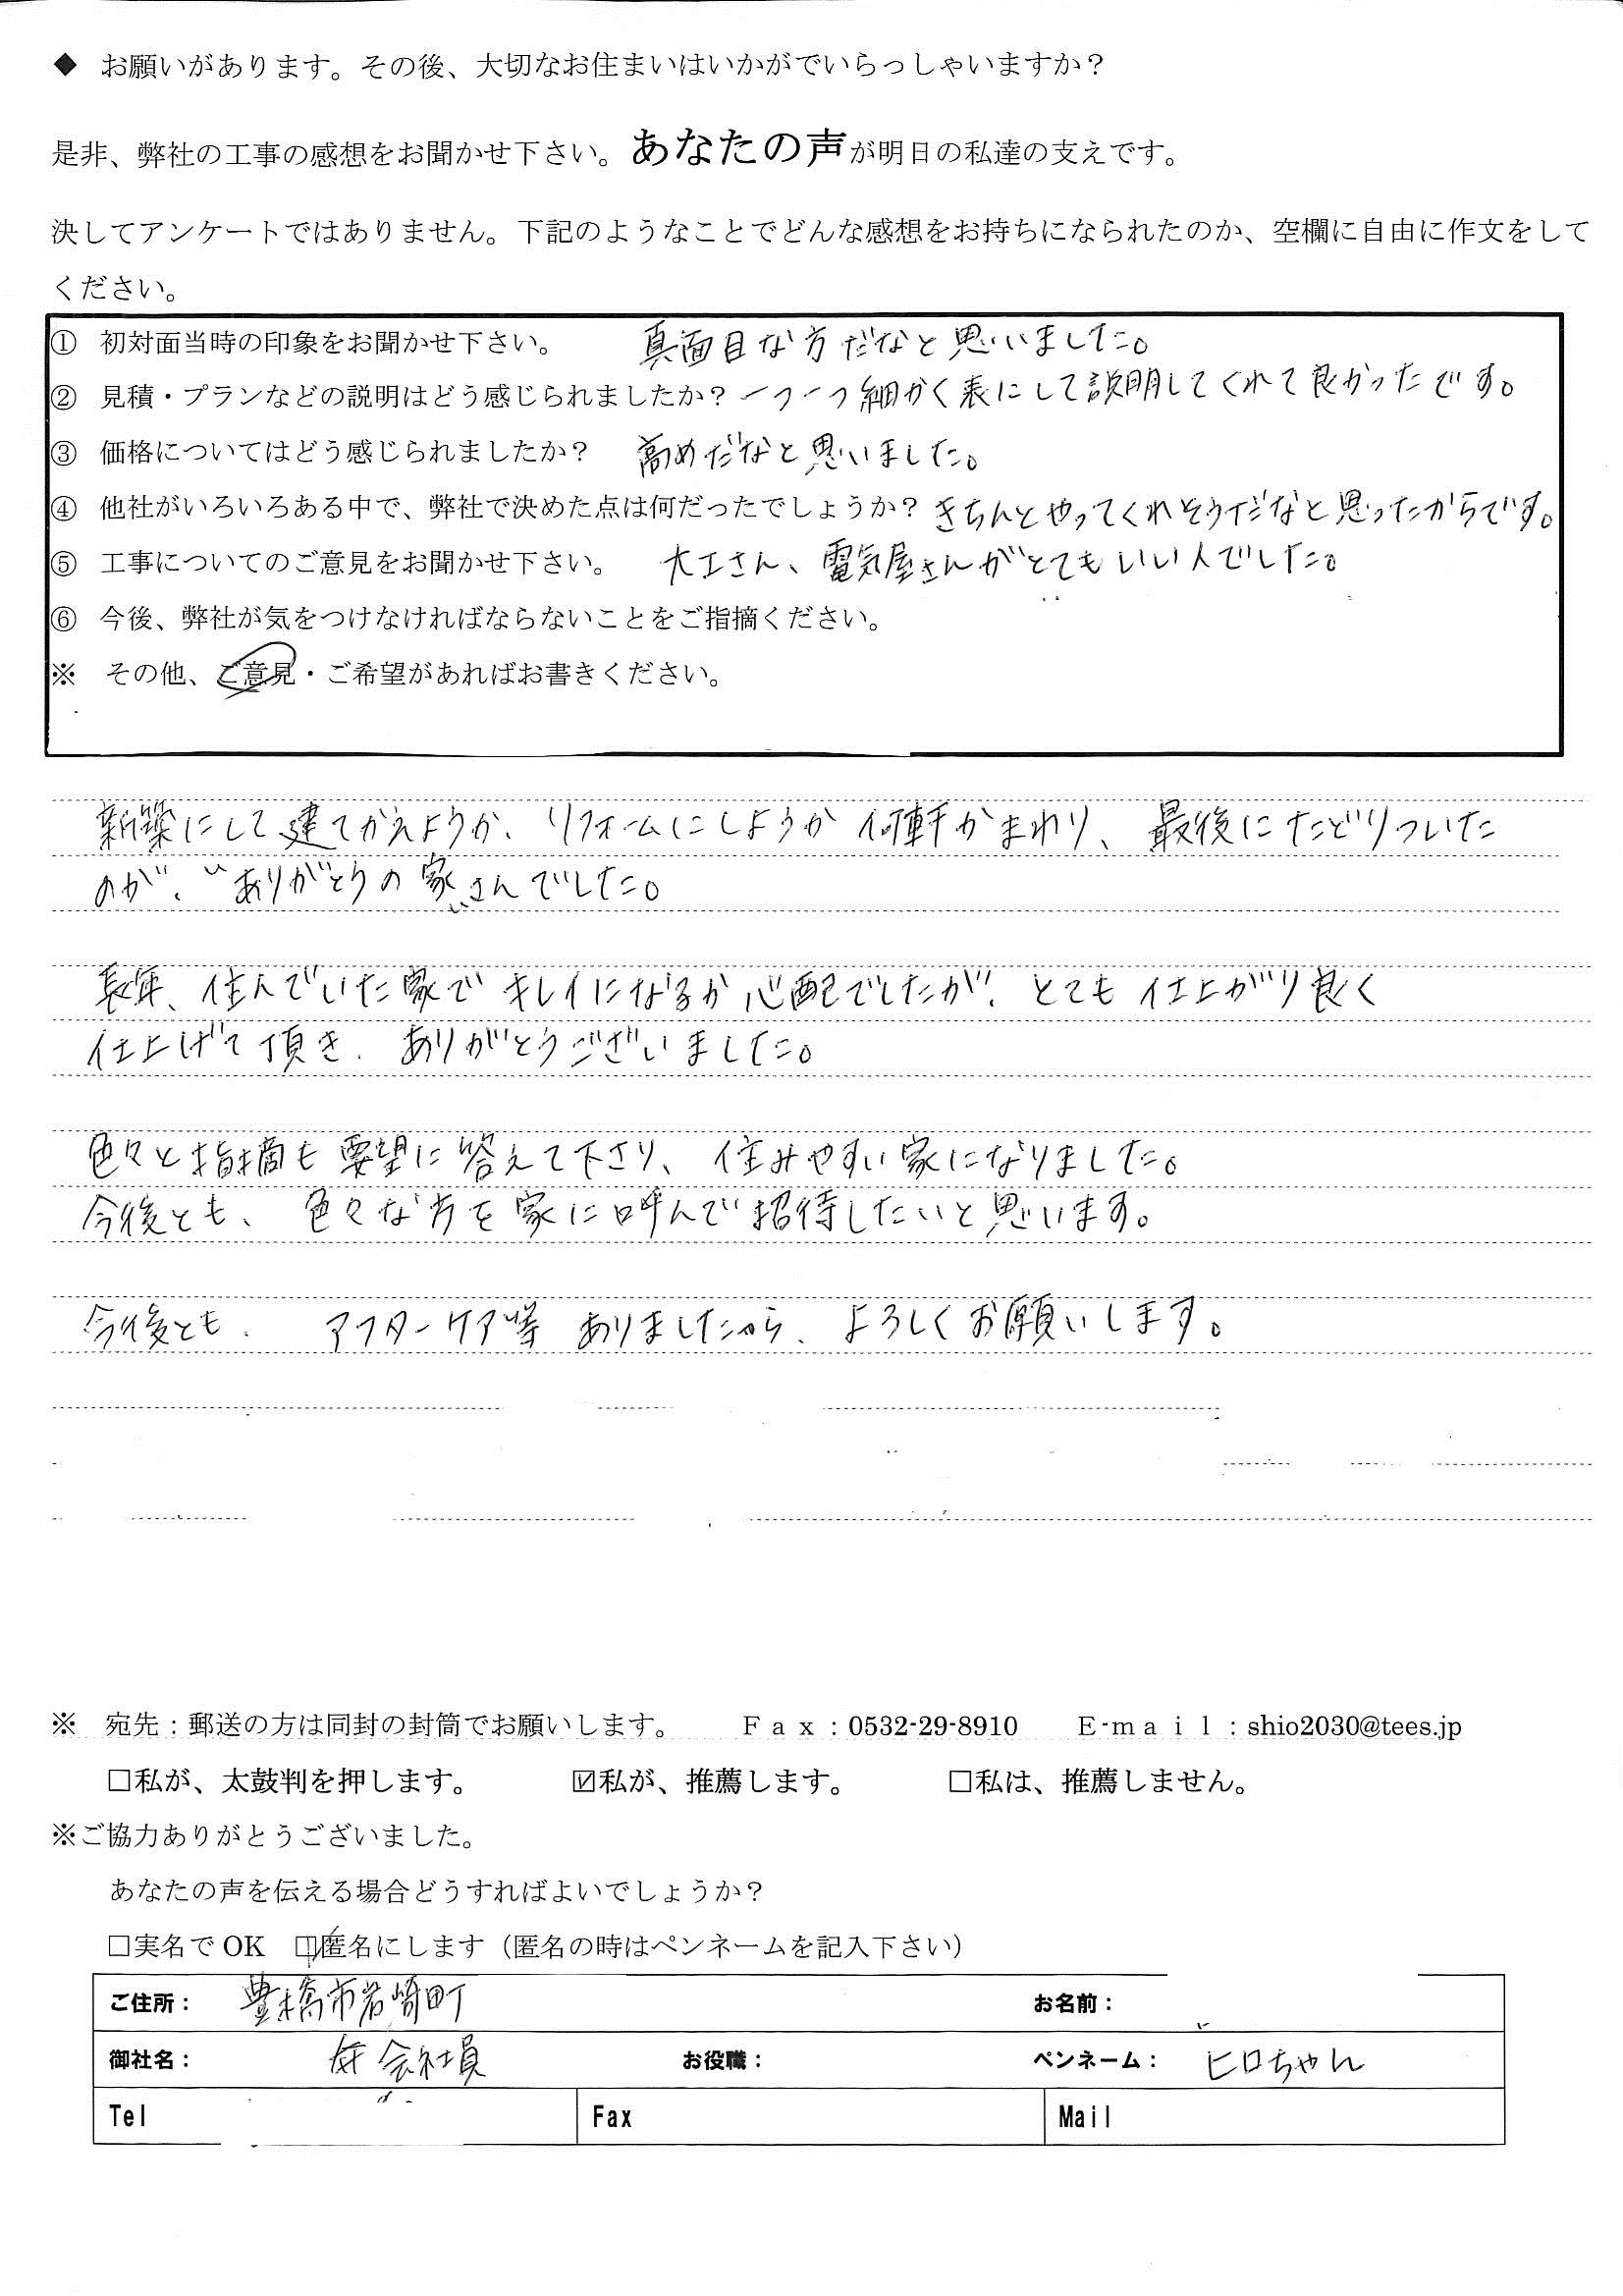 ◆ お願いがあります。その後、大切なお住まいはいかがでいらっしゃいますか？
是非、弊社の工事の感想をお聞かせ下さい。あなたの声が明日の私達の支えです。
決してアンケートではありません。下記のようなことでどんな感想をお持ちになられたのか、空欄に自由に作文をして
ください。
① 初対面当時の印象をお聞かせ下さい。 真面目な方だなと思いました。
② 見積・プランなどの説明はどう感じられましたか？ 一つ一つ細かく表にして説明してくれて良かったです。
③ 価格についてはどう感じられましたか？ 高めだなと思いました。
④ 他社がいろいろある中で、弊社で決めた点は何だったでしょうか？ きちんとやってくれそうだなと思ったからです。
⑤ 工事についてのご意見をお聞かせ下さい。 大工さん、電気屋さんがとてもいい人でした。
⑥ 今後、弊社が気をつけなければならないことをご指摘ください。
※ その他、ご意見・ご希望があればお書きください。
新築にして建てかえようか、リフォームにしようか 何軒かまわり、最後にたどりついた
のが、“ありがとうの家„さんでした。
長年、住んでいた家でキレイになるか心配でしたが、とても仕上がり良く
仕上げて頂き、ありがとうございました。
色々と指摘も要望に答えて下さり、住みやすい家になりました。
今後とも、色々な方を家に呼んで招待したいと思います。
今後とも、 アフターケア等 ありましたから、よろしくお願いします。
※ 宛先：郵送の方は同封の封筒でお願いします。 Ｆａｘ：0532-29-8910 Ｅ-ｍａｉｌ：shio2030@tees.jp
□私が、太鼓判を押します。 ☑私が、推薦します。 □私は、推薦しません。
※ご協力ありがとうございました。
あなたの声を伝える場合どうすればよいでしょうか？
□実名で OK ☑匿名にします（匿名の時はペンネームを記入下さい）
ご住所： 豊橋市岩崎町 お名前：
御社名： 会社員 お役職： ペンネーム： ヒロちゃん
Tel Fax Mail